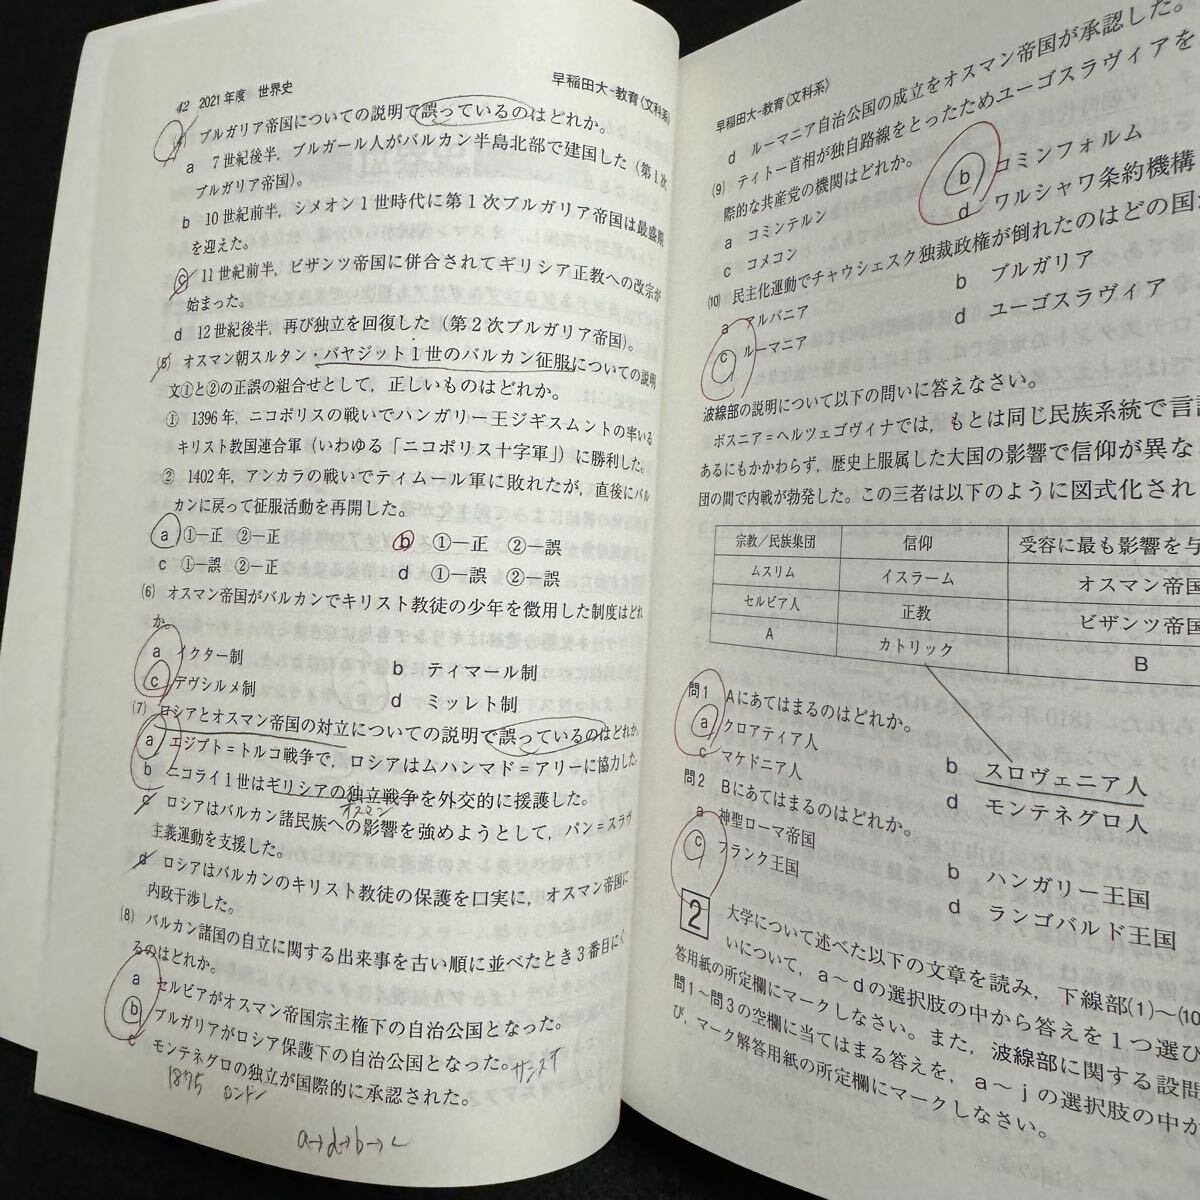 42 2021年度 世界史
早稲田大-教育〈文科系〉
(4) ブルガリア帝国についての説明で誤っているのはどれか。
a 7世紀後半，ブルガール人がバルカン半島北部で建国した（第1次
ブルガリア帝国）。
b 10世紀前半，シメオン1世時代に第1次ブルガリア帝国は最盛期
を迎えた。
c 11世紀前半，ビザンツ帝国に併合されてギリシア正教への改宗が
始まった。
d 12世紀後半，再び独立を回復した（第2次ブルガリア帝国）。
(5) オスマン朝スルタン・バヤジット1世のバルカン征服についての説明
文①と②の正誤の組合せとして，正しいものはどれか。
① 1396年，ニコポリスの戦いでハンガリー王ジギスムントの率いる
キリスト教国連合軍（いわゆる「ニコポリス十字軍」）に勝利した。
② 1402年，アンカラの戦いでティムール軍に敗れたが，直後にバル
カンに戻って征服活動を再開した。
a ①－正 ②－正
b ①－正 ②－誤
c ①－誤 ②－正
d ①－誤 ②－誤
(6) オスマン帝国がバルカンでキリスト教徒の少年を徴用した制度はどれ
か。
a イクター制
b ティマール制
c デヴシルメ制
d ミッレト制
(7) ロシアとオスマン帝国の対立についての説明で誤っているのはどれか。
a エジプト＝トルコ戦争で，ロシアはムハンマド＝アリーに協力した。
b ニコライ1世はギリシアの独立戦争を外交的に援護した。
オスマン
c ロシアはバルカン諸民族への影響を強めようとして，パン＝スラヴ
主義運動を支援した。
d ロシアはバルカンのキリスト教徒の保護を口実に，オスマン帝国に
内政干渉した。
(8) バルカン諸国の自立に関する出来事を古い順に並べたとき3番目にく
るのはどれか。
a セルビアがオスマン帝国宗主権下の自治公国となった。
b ブルガリアがロシア保護下の自治公国となった。
サンステ
c モンテネグロの独立が国際的に承認された。
1875 ロンドン
a→d→b→c
早稲田大-教育〈文科系〉
d ルーマニア自治公国の成立をオスマン帝国が承認した。
(9) ティトー首相が独自路線をとったためユーゴスラヴィアを
際的な共産党の機関はどれか。
a コミンテルン
b コミンフォルム
c コメコン
d ワルシャワ条約機構
(10) 民主化運動でチャウシェスク独裁政権が倒れたのはどの国
a アルバニア
b ブルガリア
c ルーマニア
d ユーゴスラヴィア
波線部の説明について以下の問いに答えなさい。
ボスニア＝ヘルツェゴヴィナでは，もとは同じ民族系統で言語
あるにもかかわらず，歴史上服属した大国の影響で信仰が異な
団の間で内戦が勃発した。この三者は以下のように図式化され
宗教／民族集団 信仰 受容に最も影響を与
ムスリム イスラーム オスマン帝国
セルビア人 正教 ビザンツ帝国
A カトリック B
問1 Aにあてはまるのはどれか。
a クロアティア人
b スロヴェニア人
c マケドニア人
d モンテネグロ人
問2 Bにあてはまるのはどれか。
a 神聖ローマ帝国
b ハンガリー王国
c フランク王国
d ランゴバルド王国
2 大学について述べた以下の文章を読み，下線部(1)～(10
いについて，a～dの選択肢の中から答えを1つ選び
答用紙の所定欄にマークしなさい。また，波線部に関する設問
問1～問3の空欄に当てはまる答えを，a～jの選択肢の中か
び，マーク解答用紙の所定欄にマークしなさい。